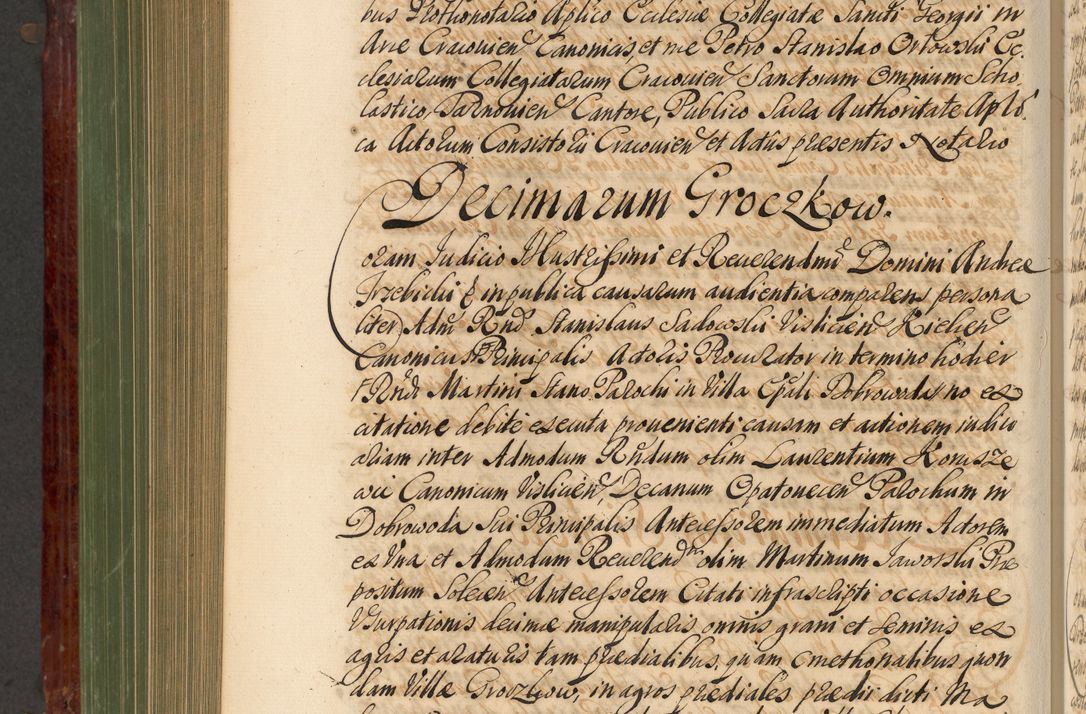 bus Prothonotario Aplico Ecclesiæ Collegiatæ Sancti Georgii in
Arce Cracouien Canonicis, et me Petro Stanislao Orłowski Ec
clesiarum Collegiatarum Cracouien Sanctorum Omnium Scho
lastico, Tarnouien Cantore, Publico Sacra Authoritate Aplõ
ca Actorum Consistorii Cracouien et Actûs præsentis Notario
Decimarum Groczkow.
oram Judicio Illustrissimi et Reuerendmi Domini Andreæ
Trzebicki & in publica causarum audientia comparens persona
liter Adm Rnd Stanislaus Sadowski Visliciens Kielcen
Canonicus Principalis Actoris Procurator in termino hodier
Rndi Martini Parochi in Villa Dobrowoda no ex
citatione debite executa prouenienti causam et actionem iudicii
ariam inter Admodum Rndum olim Laurentium Korusze
wic Canonicum Vislicien, Decanum Opatouecen Parochum in
Dobrowoda Sui Principalis Antecessorem immediatum Actorem
ex Vna et Admodum Reuerend olim Martinum Jaworski Præ
positum Solecen Antecessorem Citati infrascripti occasione
Vsurpationis decimæ manipularis omnis grani et seminis ex
agris et araturis tam prædialibus, quam cmethonalibus quon
dam Villæ Groczkow, in agros prædiales prædii dicti Ma